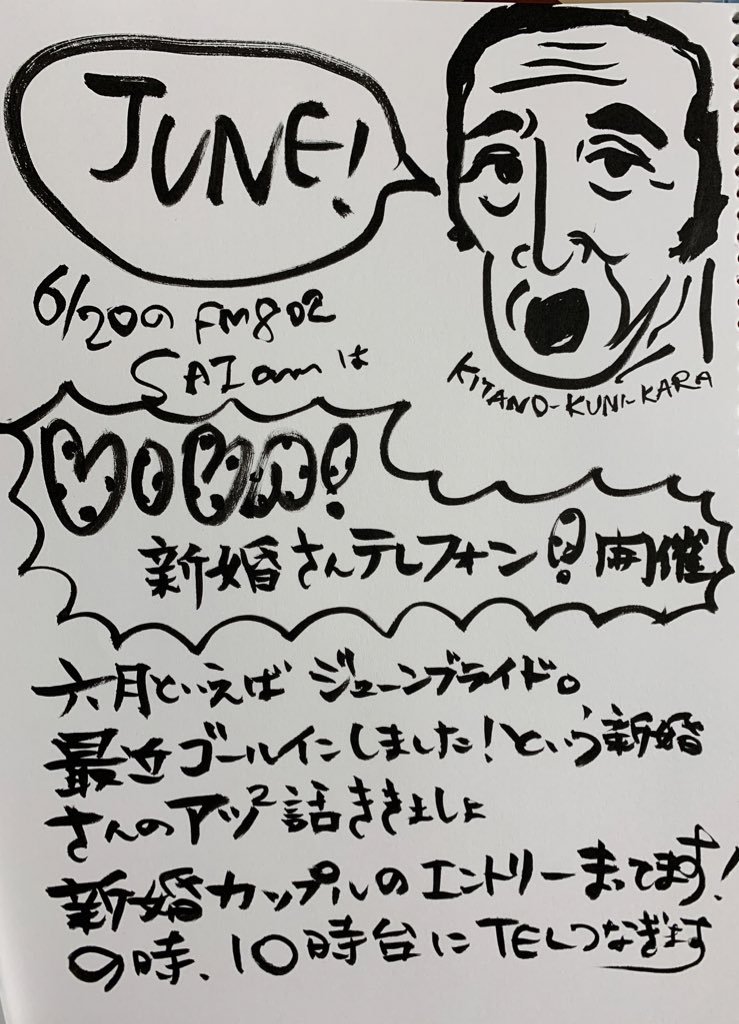 JUNE!
6/20の FM802
SATamは
KITANO-KUNI-KARA
新婚さんテレフォン!開催
六月といえば ジューンブライド。
最近ゴールインしました!という新婚
さんのアツ2話ききましょ
新婚カップルのエントリーまってます!
9時、10時台にTELつなぎます